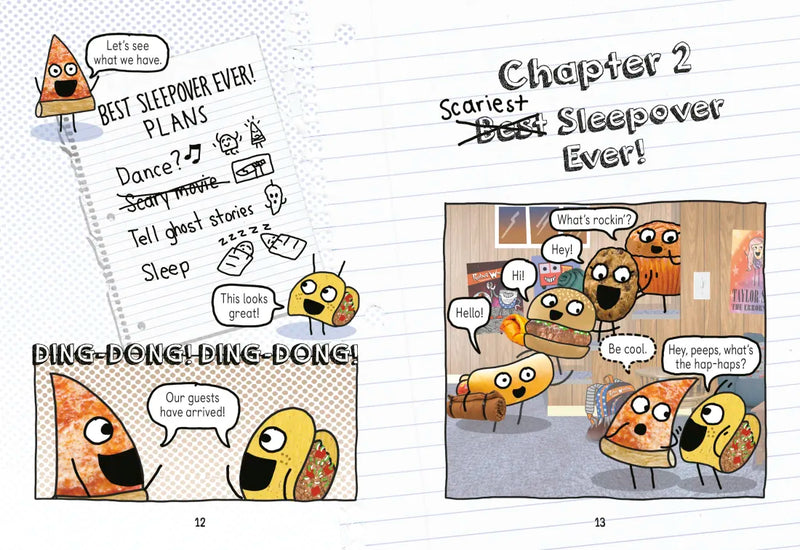 Let's see
what we have.
BEST SLEEPOVER EVER!
PLANS
Dance?
Scary movie
Tell ghost stories
zzzzz
Sleep
This looks
great!
DING-DONG! DING-DONG!
Our guests
have arrived!
12
Chapter 2
Scariest
Best Sleepover
Ever!
What's rockin'?
Hey!
Hi!
Hello!
Be cool.
Hey, peeps, what's
the hap-haps?
TAYLOR
THE ERROR
13